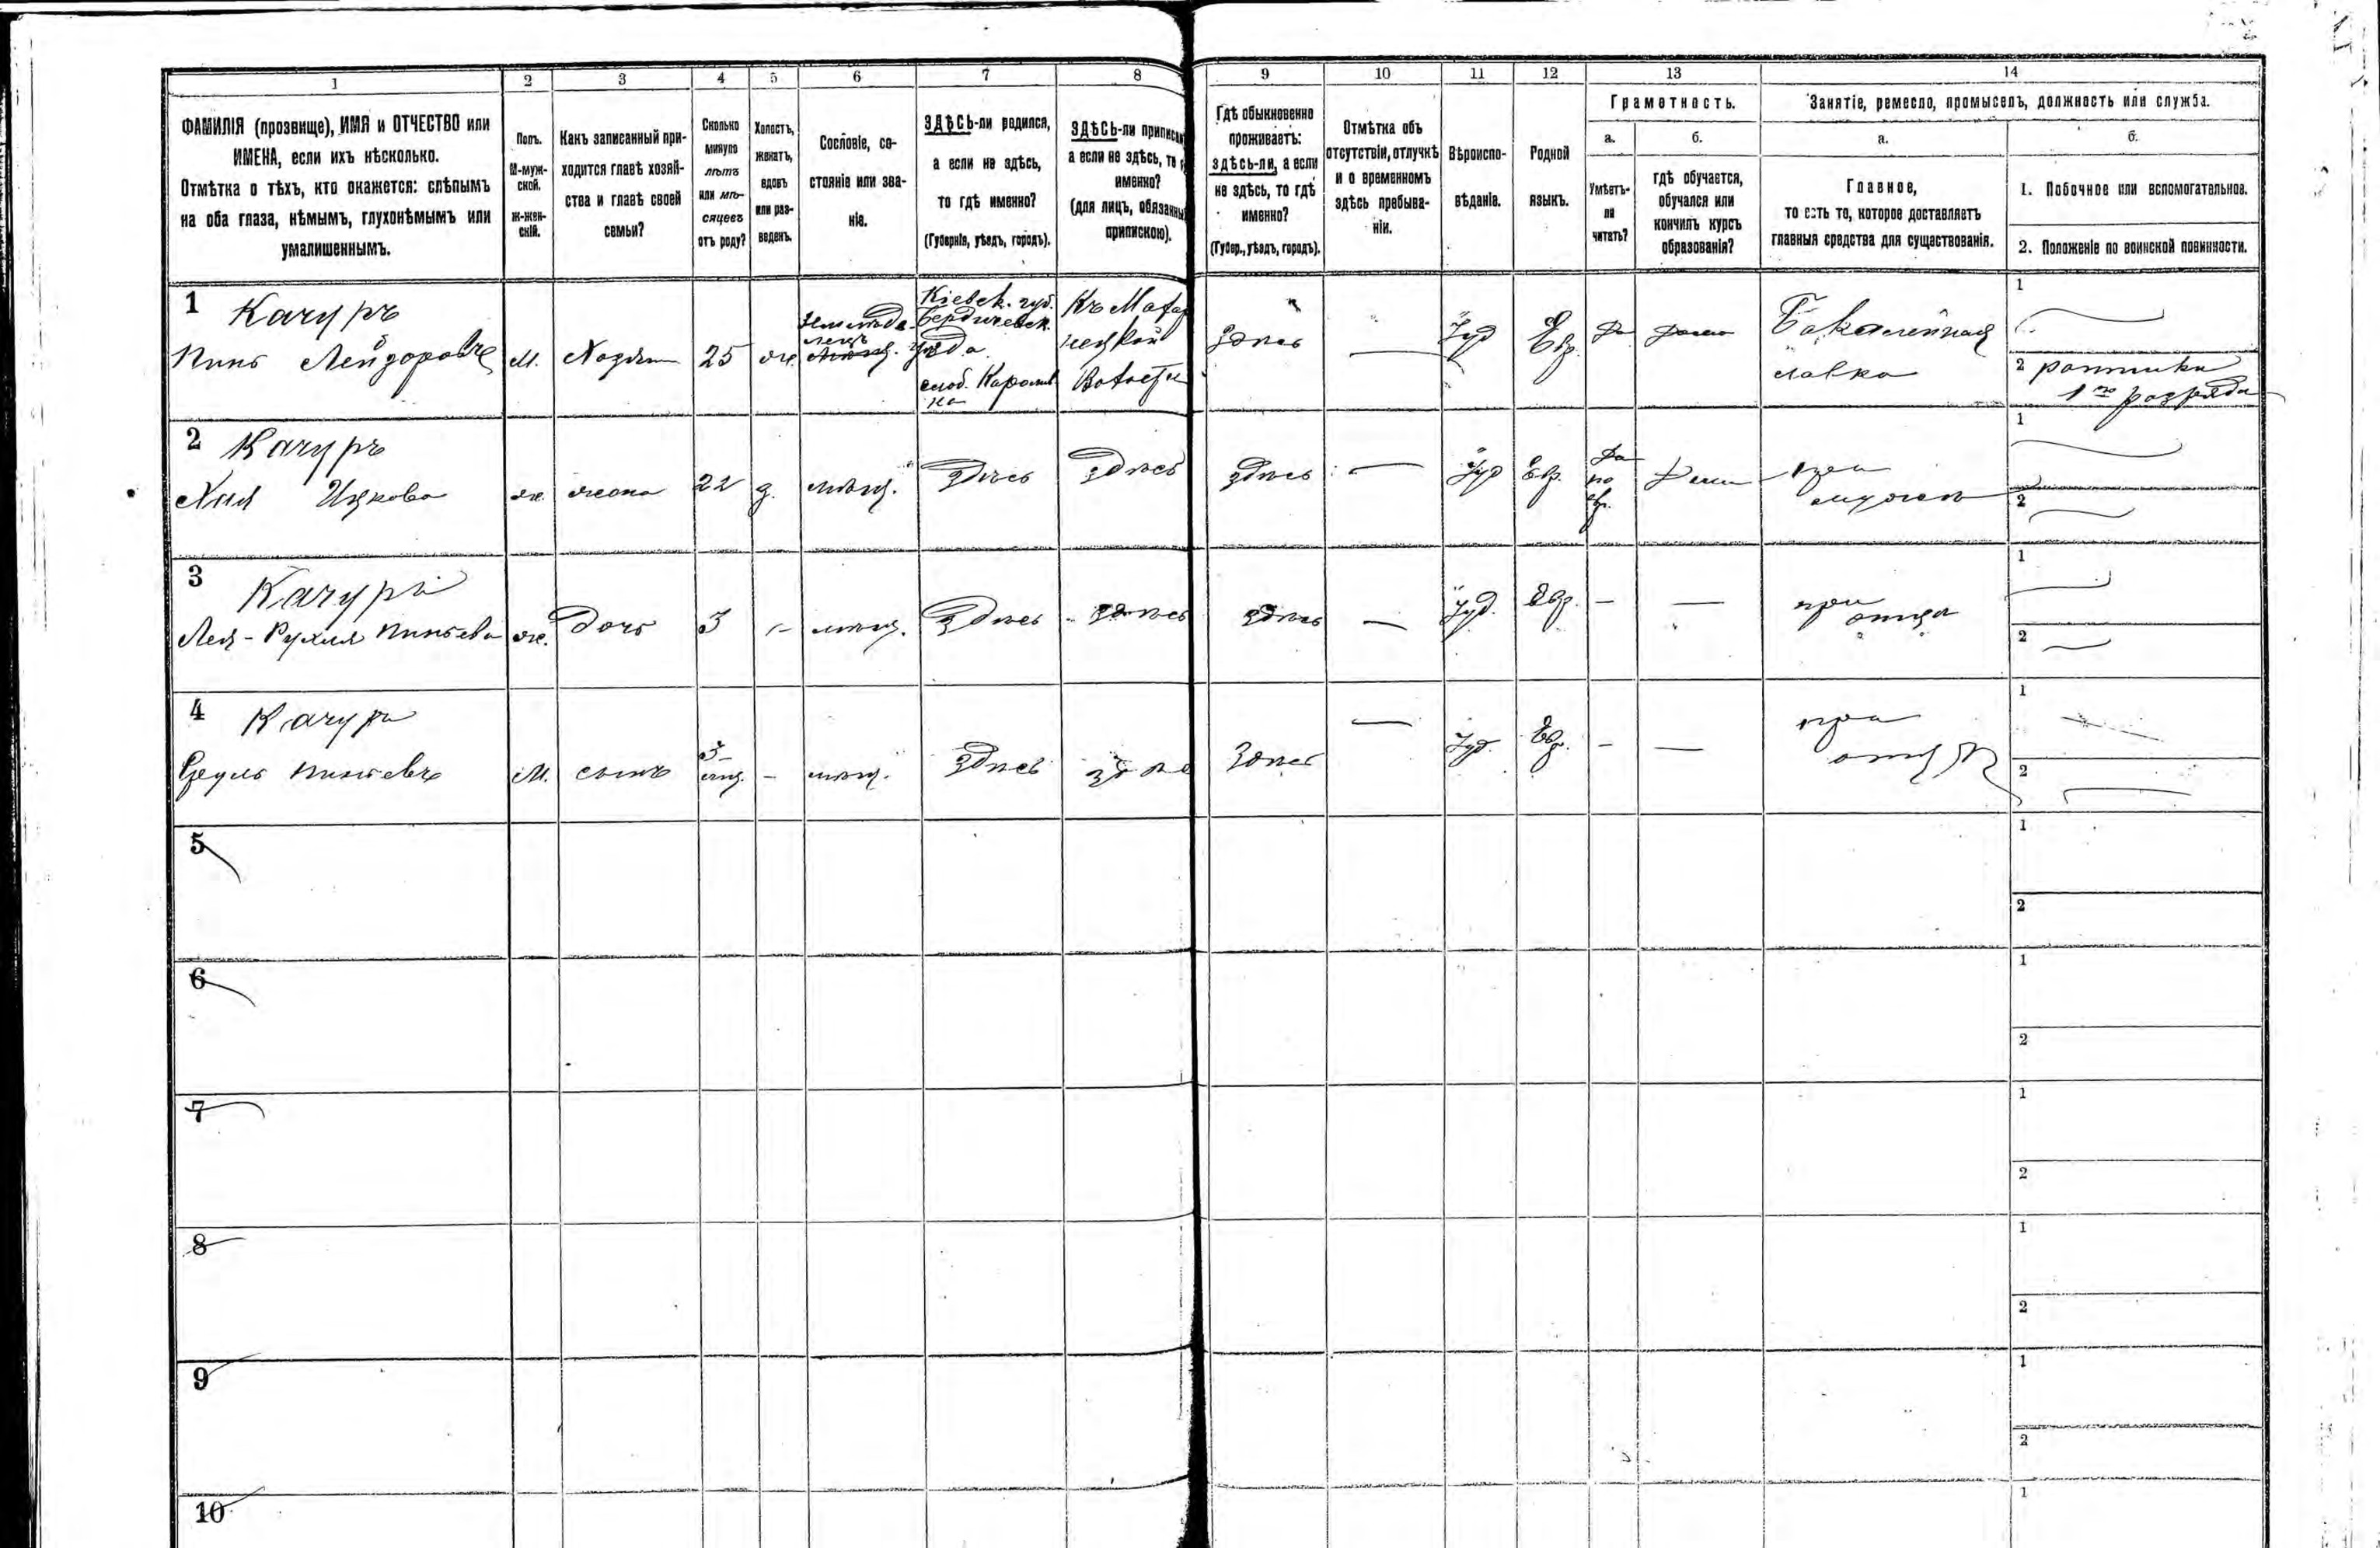 1 2 3 4 5 6 7 8 9 10 11 12 13 14
ФАМИЛІЯ (прозвище), ИМЯ и ОТЧЕСТВО или
ИМЕНА, если ихъ нѣсколько.
Отмѣтка о тѣхъ, кто окажется: слѣпымъ
на оба глаза, нѣмымъ, глухонѣмымъ или
умалишеннымъ.
Полъ.
М-муж-
ской.
ж-жен-
скій.
Какъ записанный при-
ходится главѣ хозяй-
ства и главѣ своей
семьи?
Сколько
минуло
лѣтъ
или мѣ-
сяцевъ
отъ роду?
Холостъ,
женатъ,
вдовъ
или раз-
веденъ.
Сословіе, со-
стояніе или зва-
ніе.
ЗДѢСЬ-ли родился,
а если не здѣсь,
то гдѣ именно?
(Губернія, уѣздъ, городъ).
ЗДѢСЬ-ли
а если не здѣсь, то
именно?
(для лицъ,
припискою).
Гдѣ обыкновенно
проживаетъ:
здѣсь-ли, а если
не здѣсь, то гдѣ
именно?
(Губер., уѣздъ, городъ).
Отмѣтка объ
отсутствіи, отлучкѣ
и о временномъ
здѣсь пребыва-
ніи.
Вѣроиспо-
вѣданіе.
Родной
языкъ.
Грамотность.
а.
Умѣетъ-
ли
читать?
б.
гдѣ обучается,
обучался или
кончилъ курсъ
образованія?
Занятіе, ремесло, промыселъ, должность или служба.
а.
Главное,
то есть то, которое доставляетъ
главныя средства для существованія.
б.
1. Побочное или вспомогательное.
2. Положеніе по воинской повинности.
1 Качуръ
Пинь
м.
25
Кіевск. губ.
Бердичевск.
уѣзда
слоб.
Къ
здѣсь
Іуд
Евр.
Да
Бакалейная
лавка
1
2
1го разряда
2 Качуръ
Хая Ицкова
ж.
жена
22
з.
мѣщ.
здѣсь
здѣсь
здѣсь
Іуд
Евр.
Да
по
евр.
при
мужѣ
1
2
3 Качуръ
ж.
дочь
3
мѣщ.
здѣсь
здѣсь
здѣсь
Іуд.
Евр.
при
отцѣ
1
2
4 Качуръ
м.
сынъ
мѣщ.
здѣсь
здѣсь
здѣсь
Іуд.
Евр.
при
отцѣ
1
2
5
1
2
6
1
2
7
1
2
8
1
2
9
1
2
10
1